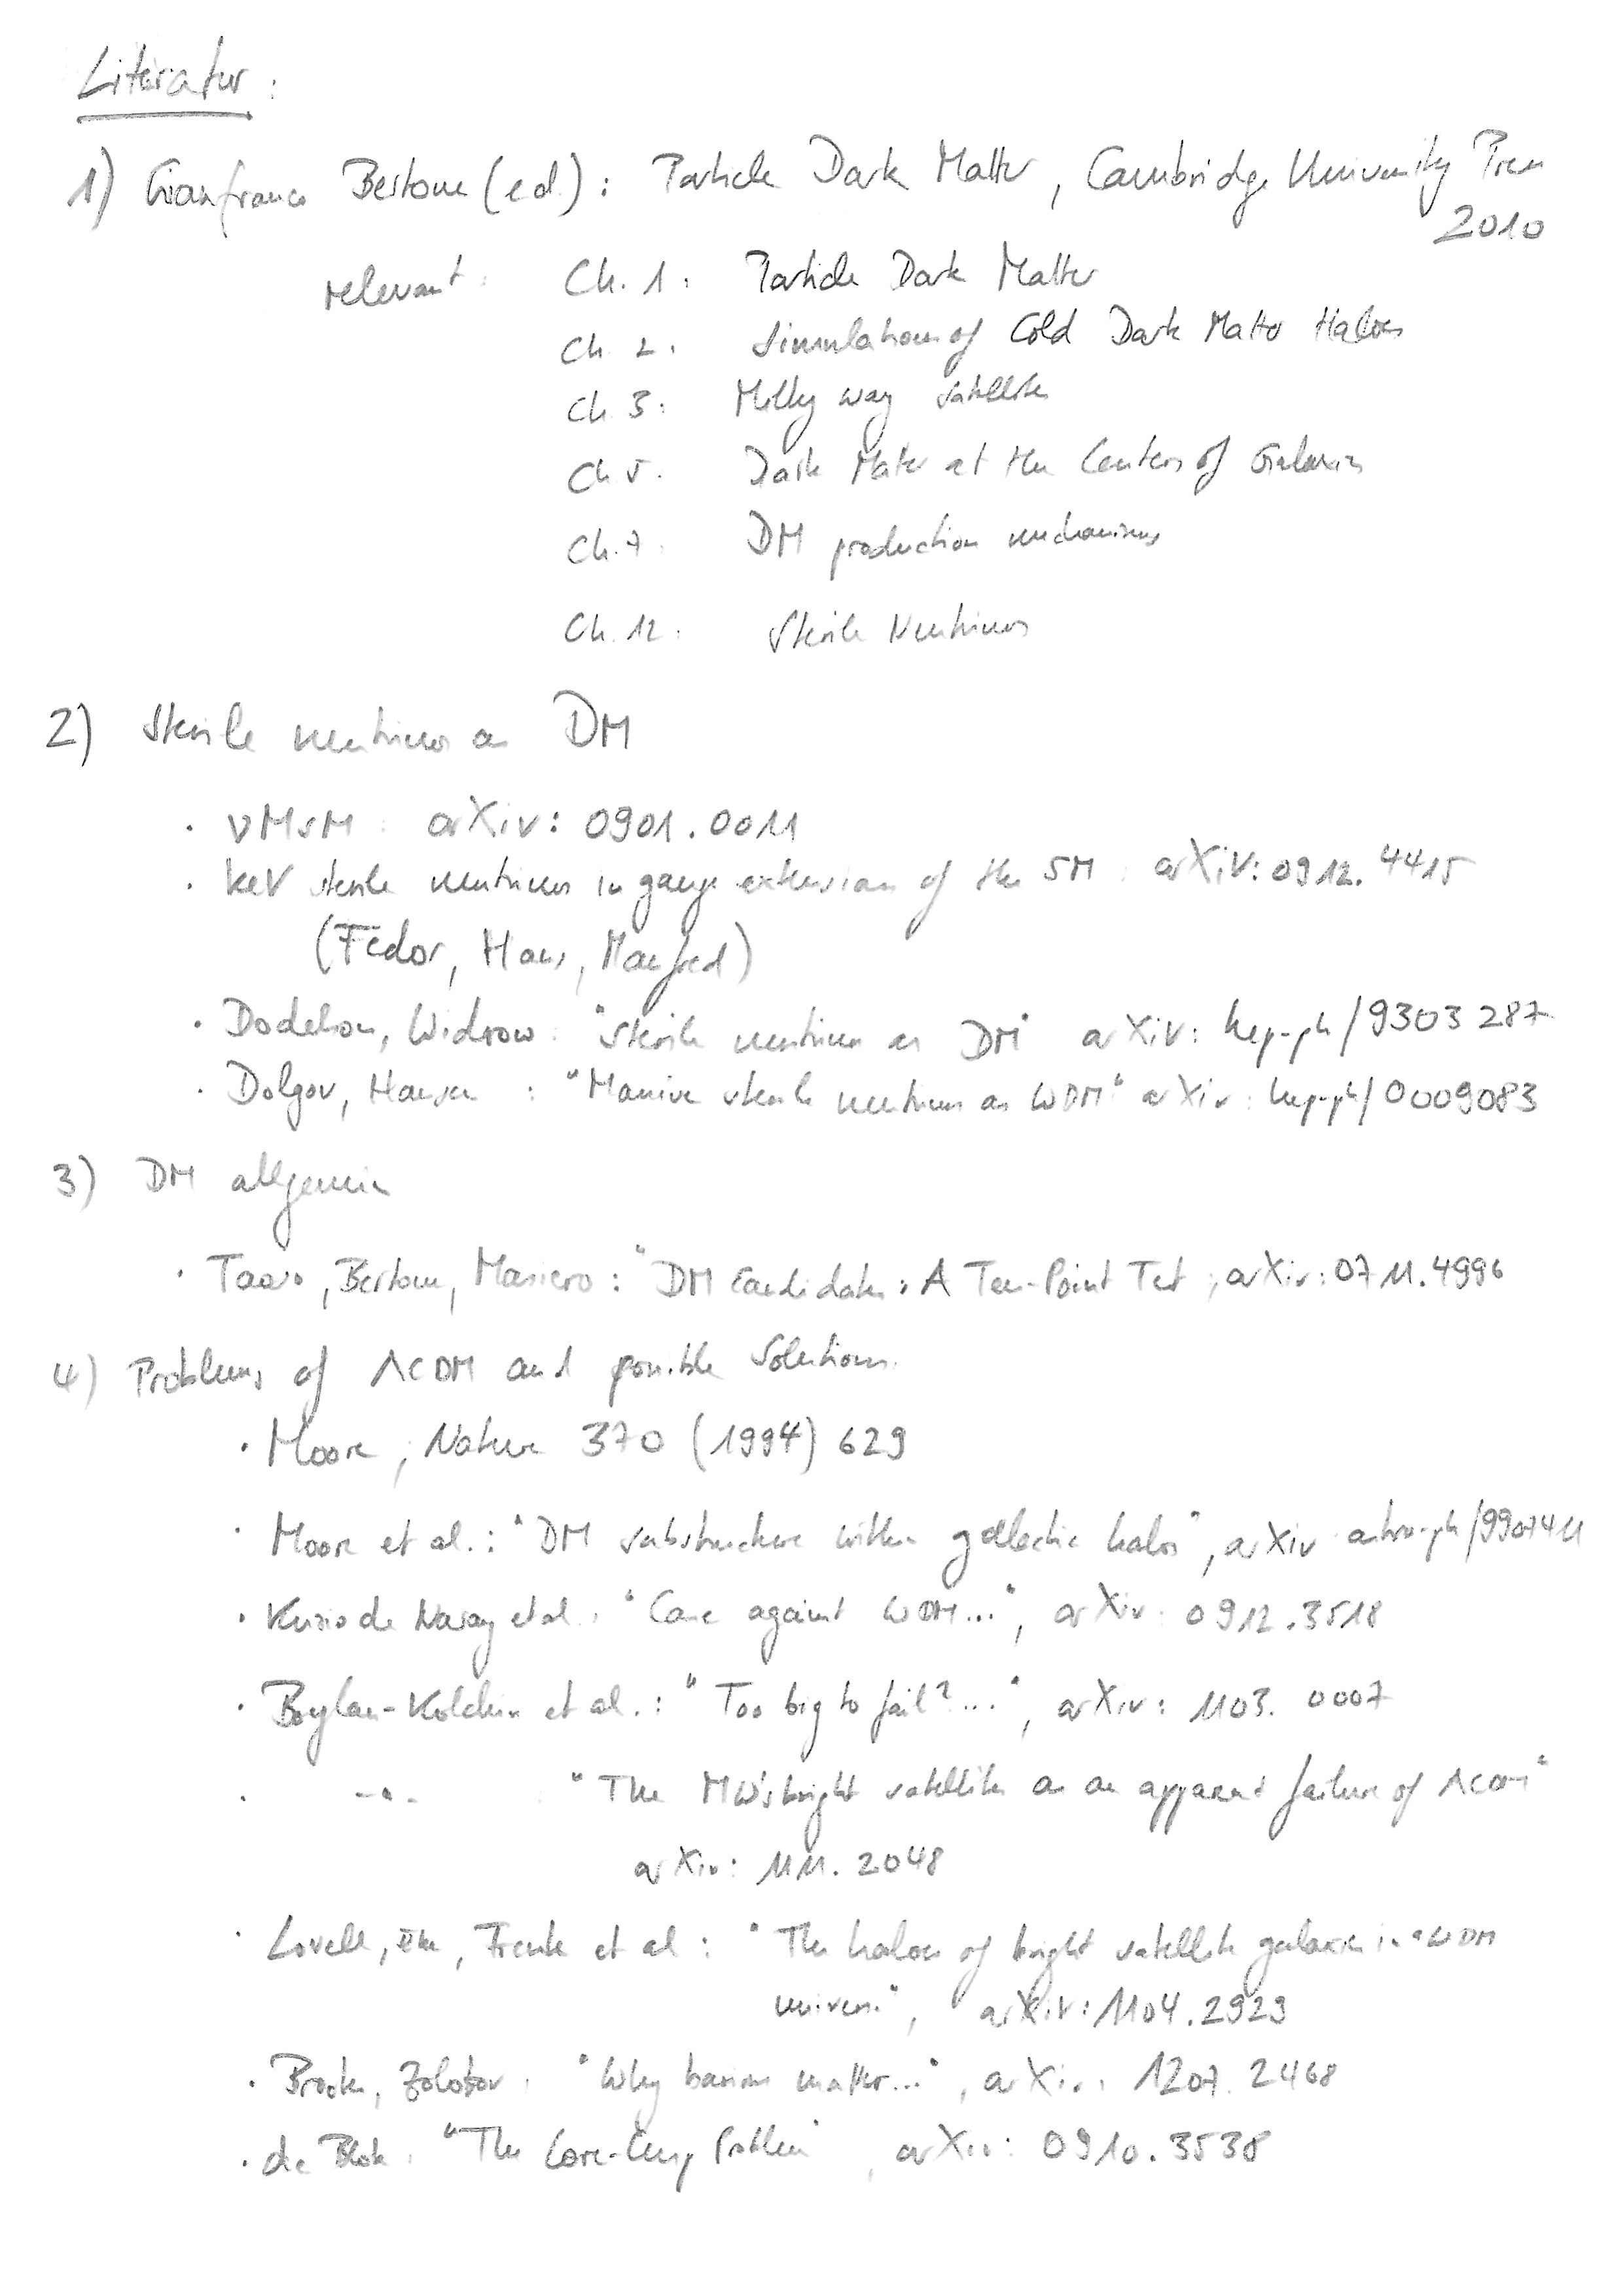 Literatur:
1) Gianfranco Bertone (ed.): Particle Dark Matter, Cambridge University Press
2010
relevant: Ch. 1: Particle Dark Matter
Ch. 2: Simulations of Cold Dark Matter Haloes
Ch. 3: Milky way satellites
Ch. 5: Dark Matter at the Centers of Galaxies
Ch. 7: DM production mechanisms
Ch. 12: Sterile Neutrinos
2) Sterile neutrinos as DM
· νMSM: arXiv: 0901.0011
· keV sterile neutrinos in gauge extension of the SM: arXiv: 0912.4415
(Fedor, Hans, Manfred)
· Dodelson, Widrow: "Sterile neutrinos as DM" arXiv: hep-ph/9303287
· Dolgov, Hansen: "Massive sterile neutrinos as WDM" arXiv: hep-ph/0009083
3) DM allgemein
· Taoso, Bertone, Masiero: "DM Candidates: A Ten-Point Test", arXiv: 0711.4996
4) Problems of ΛCDM and possible Solutions
· Moore, Nature 370 (1994) 629
· Moore et al.: "DM substructure within galactic halos", arXiv astro-ph/9907411
· Kuzio de Naray et al.: "Case against WDM...", arXiv: 0912.3518
· Boylan-Kolchin et al.: "Too big to fail? ...", arXiv: 1103.0007
· -"- "The MW's bright satellites as an apparent failure of ΛCDM"
arXiv: 1111.2048
· Lovell, Eke, Frenk et al: "The haloes of bright satellite galaxies in a WDM
universe", arXiv: 1104.2929
· Brooks, Zolotov: "Why baryons matter...", arXiv: 1207.2468
· de Blok: "The Core-Cusp Problem", arXiv: 0910.3538